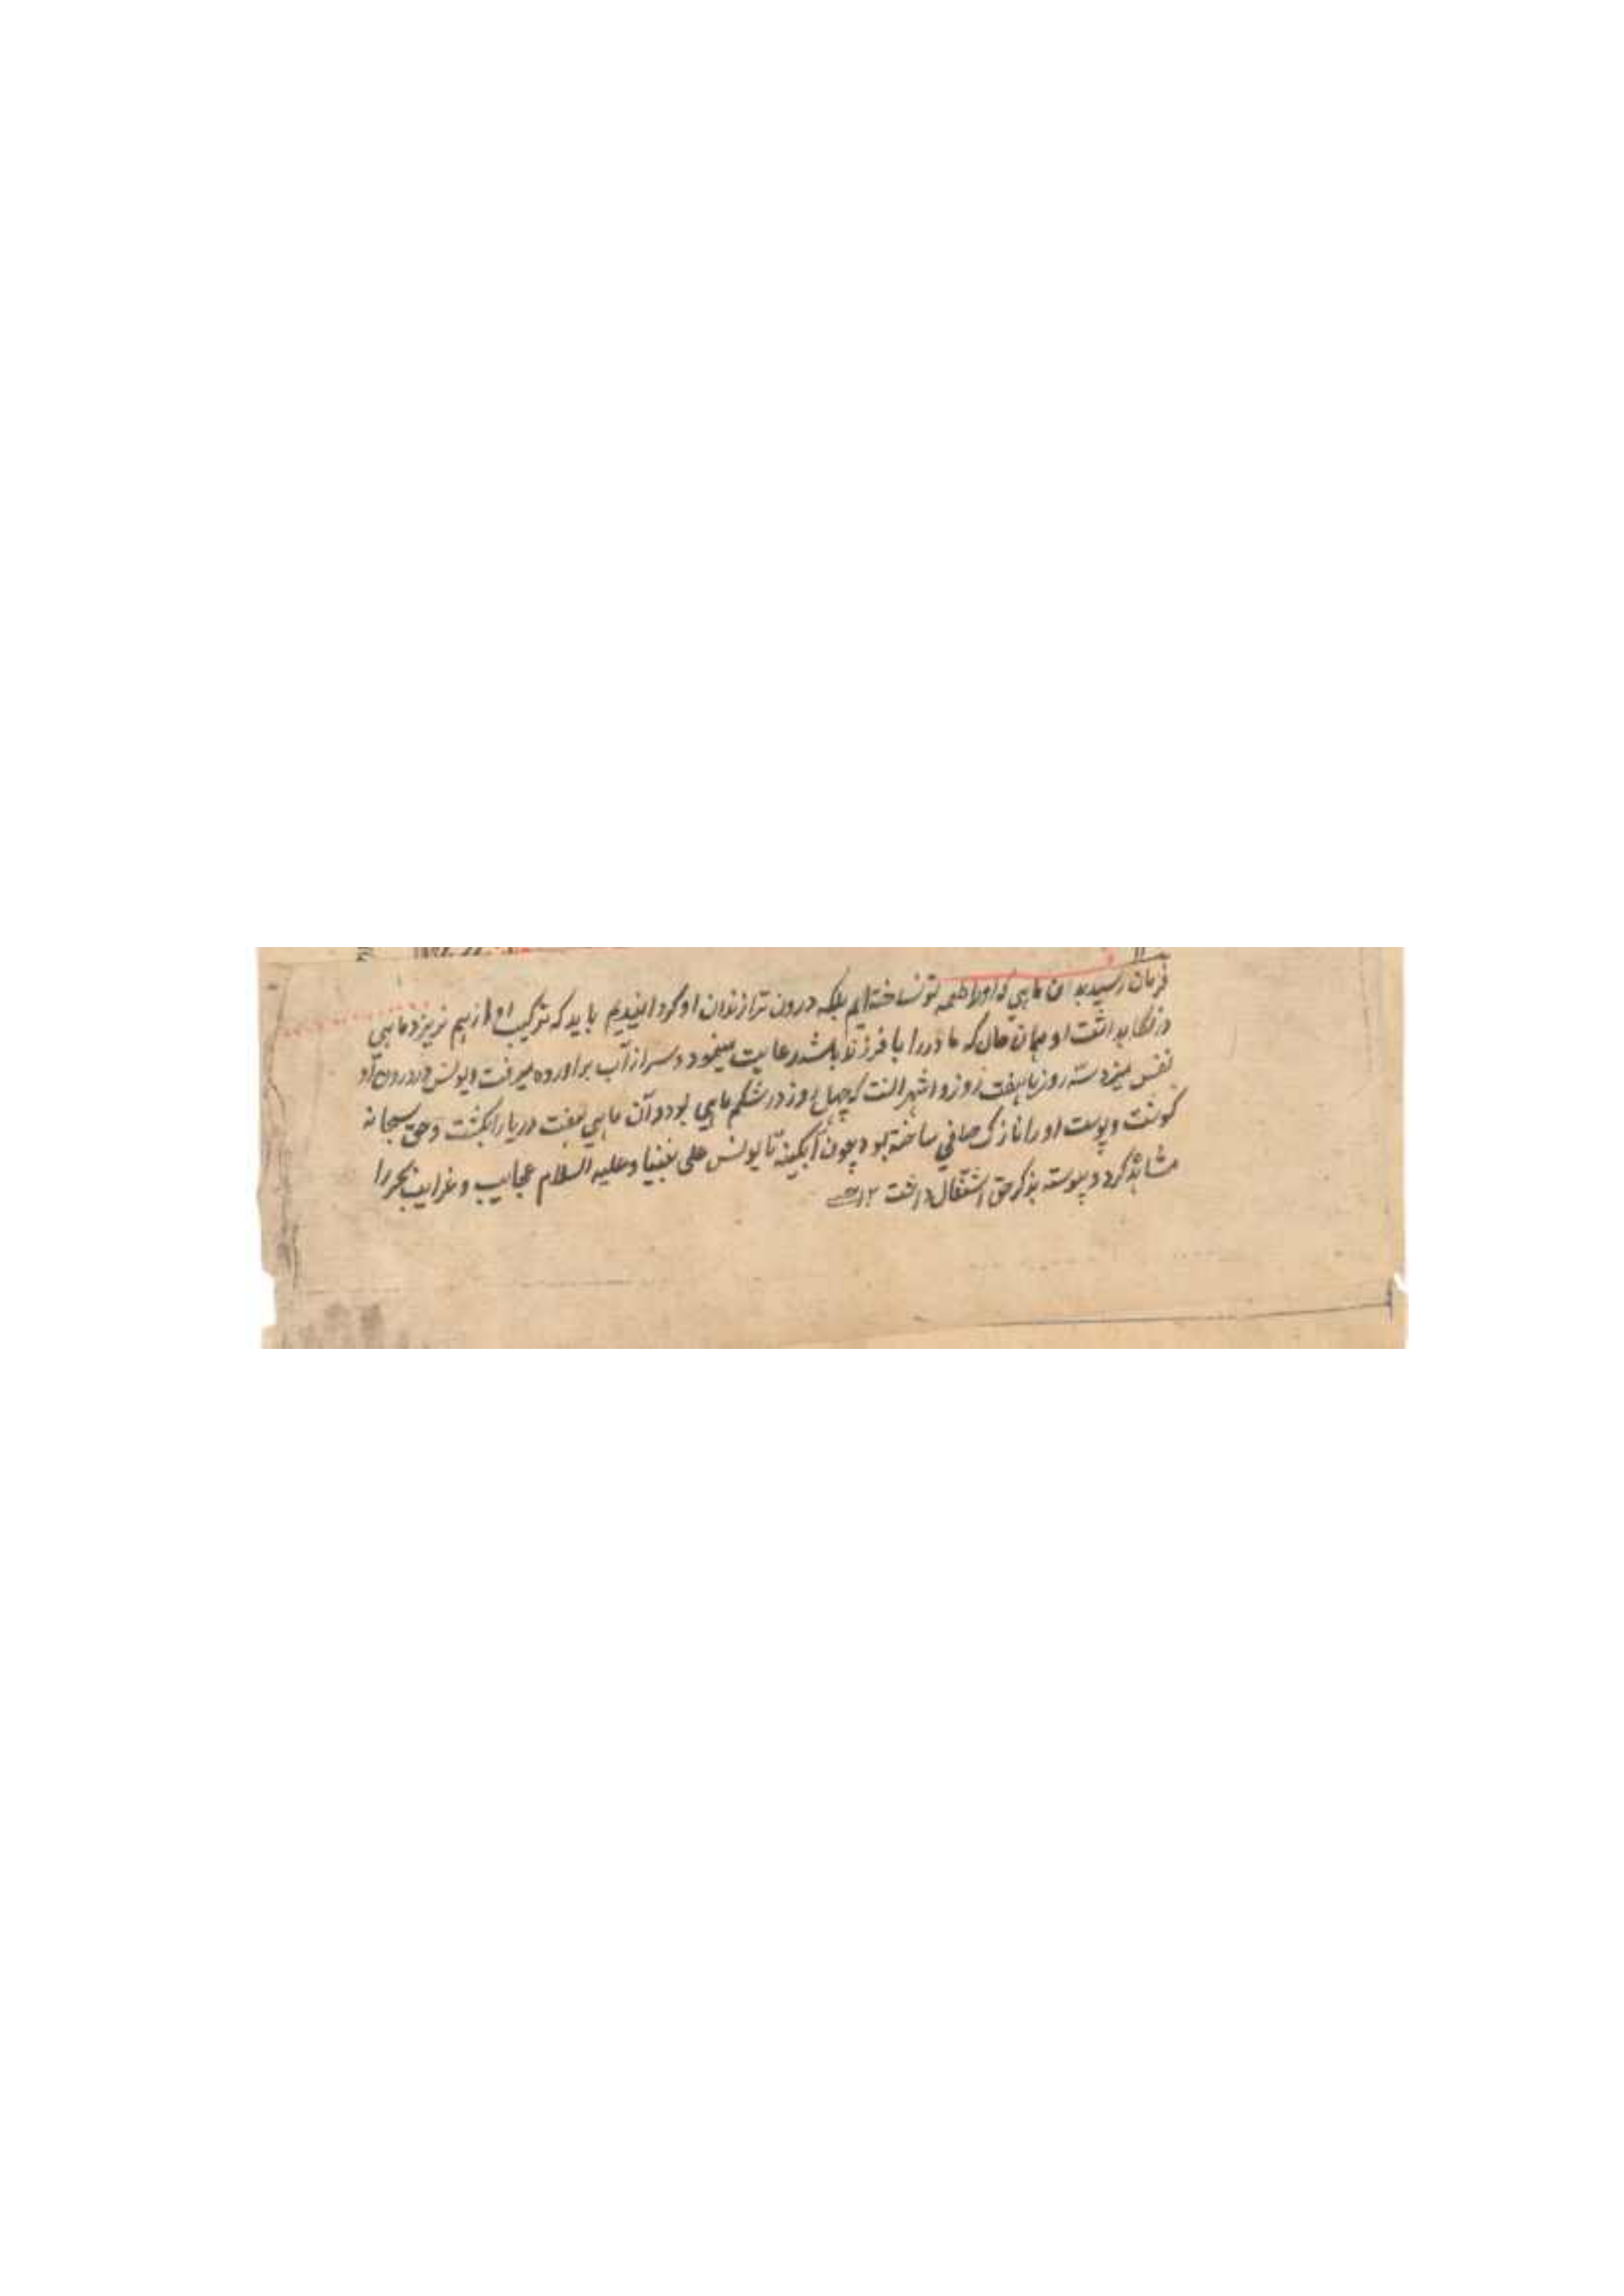 فرمان رسید بدان ماهی که او را طعمه تو نساخته‌ایم بلکه درون ترا زندان او گردانیدیم باید که ترکیب او از هم نریزد ماهی
در نگاهداشت او همان حال که مادر را با فرزند باشد رعایت مینمود و سر از آب برآورده میرفت و یونس در درون او
نفس میزد سه روز یا هفت روز و اشهر آنست که چهل روز در شکم ماهی بود و آن ماهی هفت دریا را بگشت و حق سبحانه
گوشت و پوست او را نازک صافی ساخته بود چون آبگینه تا یونس علی نبینا و علیه السلام عجایب و غرایب بحر را
مشاهده کرد و پیوسته بذکر حق اشتغال داشت ۱۲